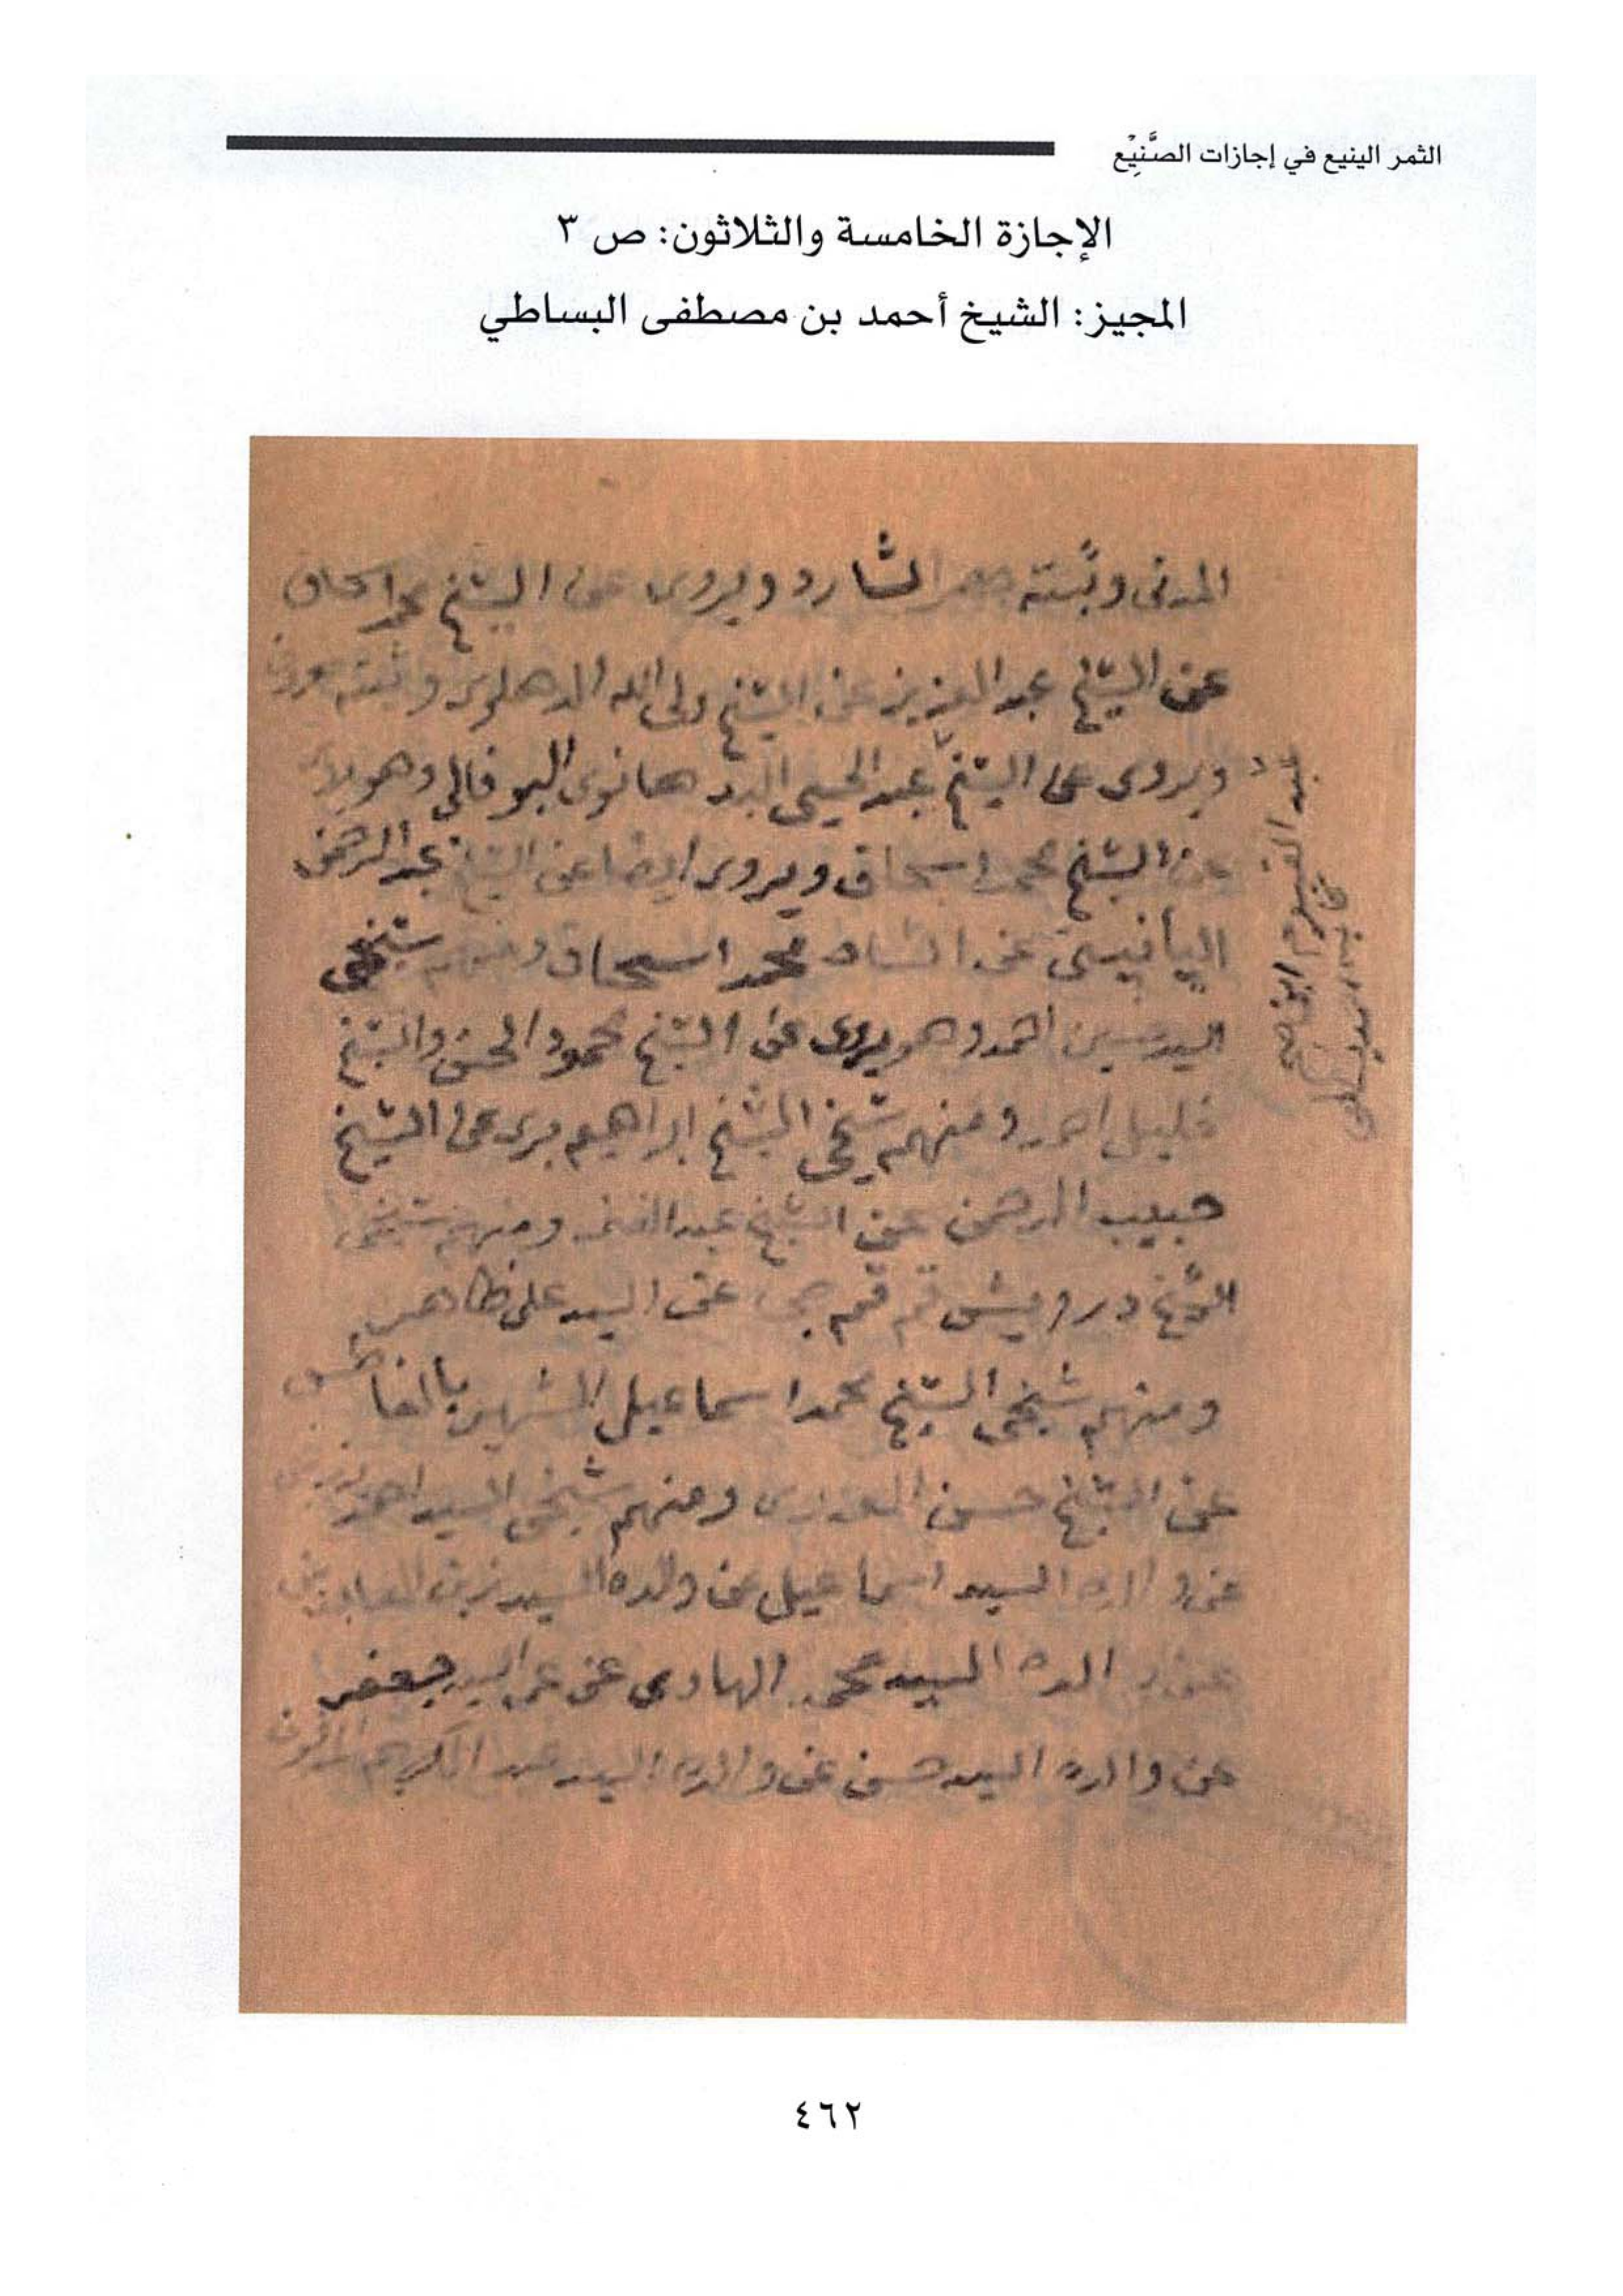 الثمر الينيع في إجازات الصَّنِيْع
الإجازة الخامسة والثلاثون: ص ٣
المجيز: الشيخ أحمد بن مصطفى البساطي
المدنى وثبته حصر الشارد ويروى عن الشيخ محمد اسحاق
عن الشيخ عبد العزيز عن الشيخ ولى الله الدهلوى وثبته
ويروى عن الشيخ عبد الحيى البدهانوى البوفالى وهو
عن الشيخ محمد اسحاق ويروى ايضا عن الشيخ عبد الرحمن
اليانيستى عن الشاه محمد اسحاق ومنهم شيخى
السيد حسين احمد وهو يروى عن الشيخ محمود الحسن والشيخ
خليل احمد ومنهم شيخى الشيخ ابراهيم برى عن الشيخ
حبيب الرحمن عن الشيخ عبد الغنى ومنهم شيخى
الشيخ درويش قمقمجى عن السيد على ظاهر
ومنهم شيخى الشيخ محمد اسماعيل الشهير
عن الشيخ حسن العدوى ومنهم شيخى السيد احمد
عن والده السيد اسماعيل عن والده السيد زين العابدين
عن والده السيد محمد الهادى عن عمه السيد جعفر
عن والده السيد حسن عن والده السيد عبد الكريم
عبد القيوم ابن
٤٦٢